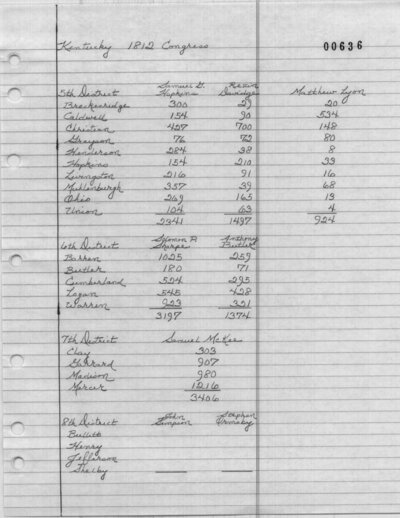 Kentucky 1812 Congress 00636
Samuel G. Rezin
5th District Hopkins Davidge Matthew Lyon
Breckenridge 300 29 20
Caldwell 154 90 534
Christian 427 700 148
Grayson 76 72 80
Henderson 284 38 8
Hopkins 154 210 33
Livingston 216 91 16
Muhlenburgh 357 39 68
Ohio 269 165 13
Union 104 63 4
2341 1497 924
Solomon P. Anthony
6th District Sharpe Butler
Barren 1025 259
Butler 180 71
Cumberland 524 295
Logan 545 428
Warren 923 321
3197 1374
7th District Samuel McKee
Clay 303
Garrard 907
Madison 980
Mercer 1216
3406
John Stephen
8th District Simpson Ormsby
Bullitt
Henry
Jefferson
Shelby